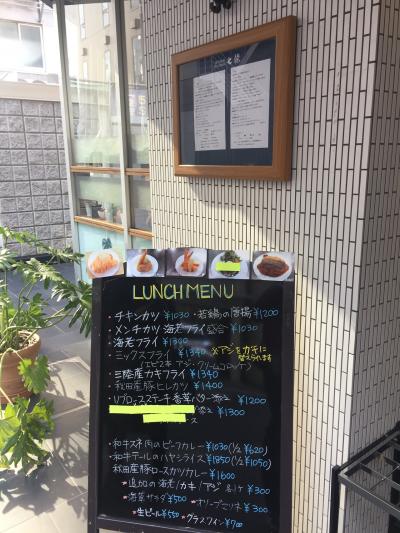 LUNCH MENU
・チキンカツ ¥1030 ・若鶏の香揚 ¥1200
・メンチカツ 海老フライ盛合 ¥1030
・海老フライ ¥1340
・ミックスフライ ¥1340 ※アジをカキに
替えられます
(エビ2本・アジ・クリームコロッケ)
・三陸産カキフライ ¥1340
・秋田産豚ヒレカツ ¥1400
ステーキ香草バター添え ¥1200
添え ¥1300
ース
・和牛スネ肉のビーフカレー ¥1030 (½ ¥620)
・和牛テールのハヤシライス ¥1850 (½ ¥1050)
秋田産豚ロースカツカレー ¥1600
*追加の海老/カキ/アジ 各1ケ ¥300
*海菜サラダ ¥500 *オリーブミツネ ¥300
*生ビール ¥550 *グラスワイン ¥700